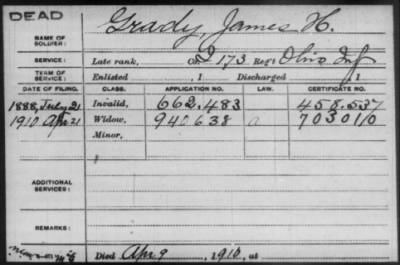 DEAD
NAME OF SOLDIER: Grady, James H.
SERVICE: Late rank, Co. I 173 Reg't Ohio Inf
TERM OF SERVICE: Enlisted , 1 Discharged , 1
DATE OF FILING. CLASS. APPLICATION NO. LAW. CERTIFICATE NO.
1888, July 21 Invalid, 662.483 458.537
1910 Apr 21 Widow, 940638 a 703010
Minor,
ADDITIONAL SERVICES:
REMARKS:
Died Apr 9, 1910, at